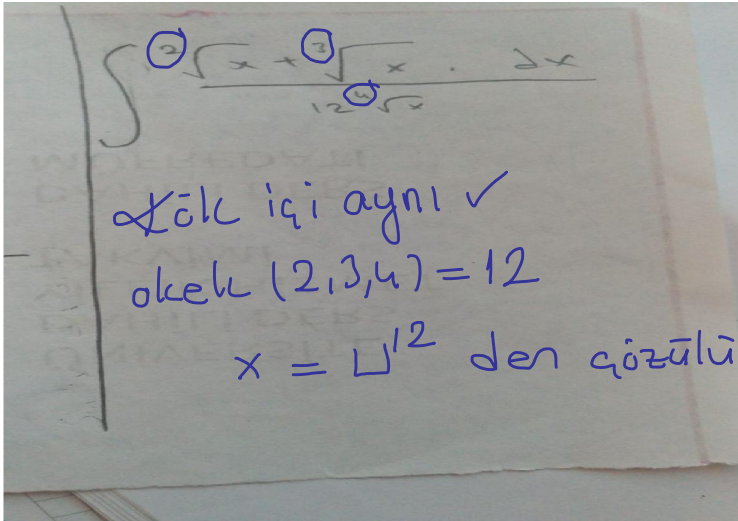 ∫ ²√x + ³√x . dx
12 ⁴√x
Kök içi aynı ✓
okek (2,3,4) = 12
x = u¹² den çözülü